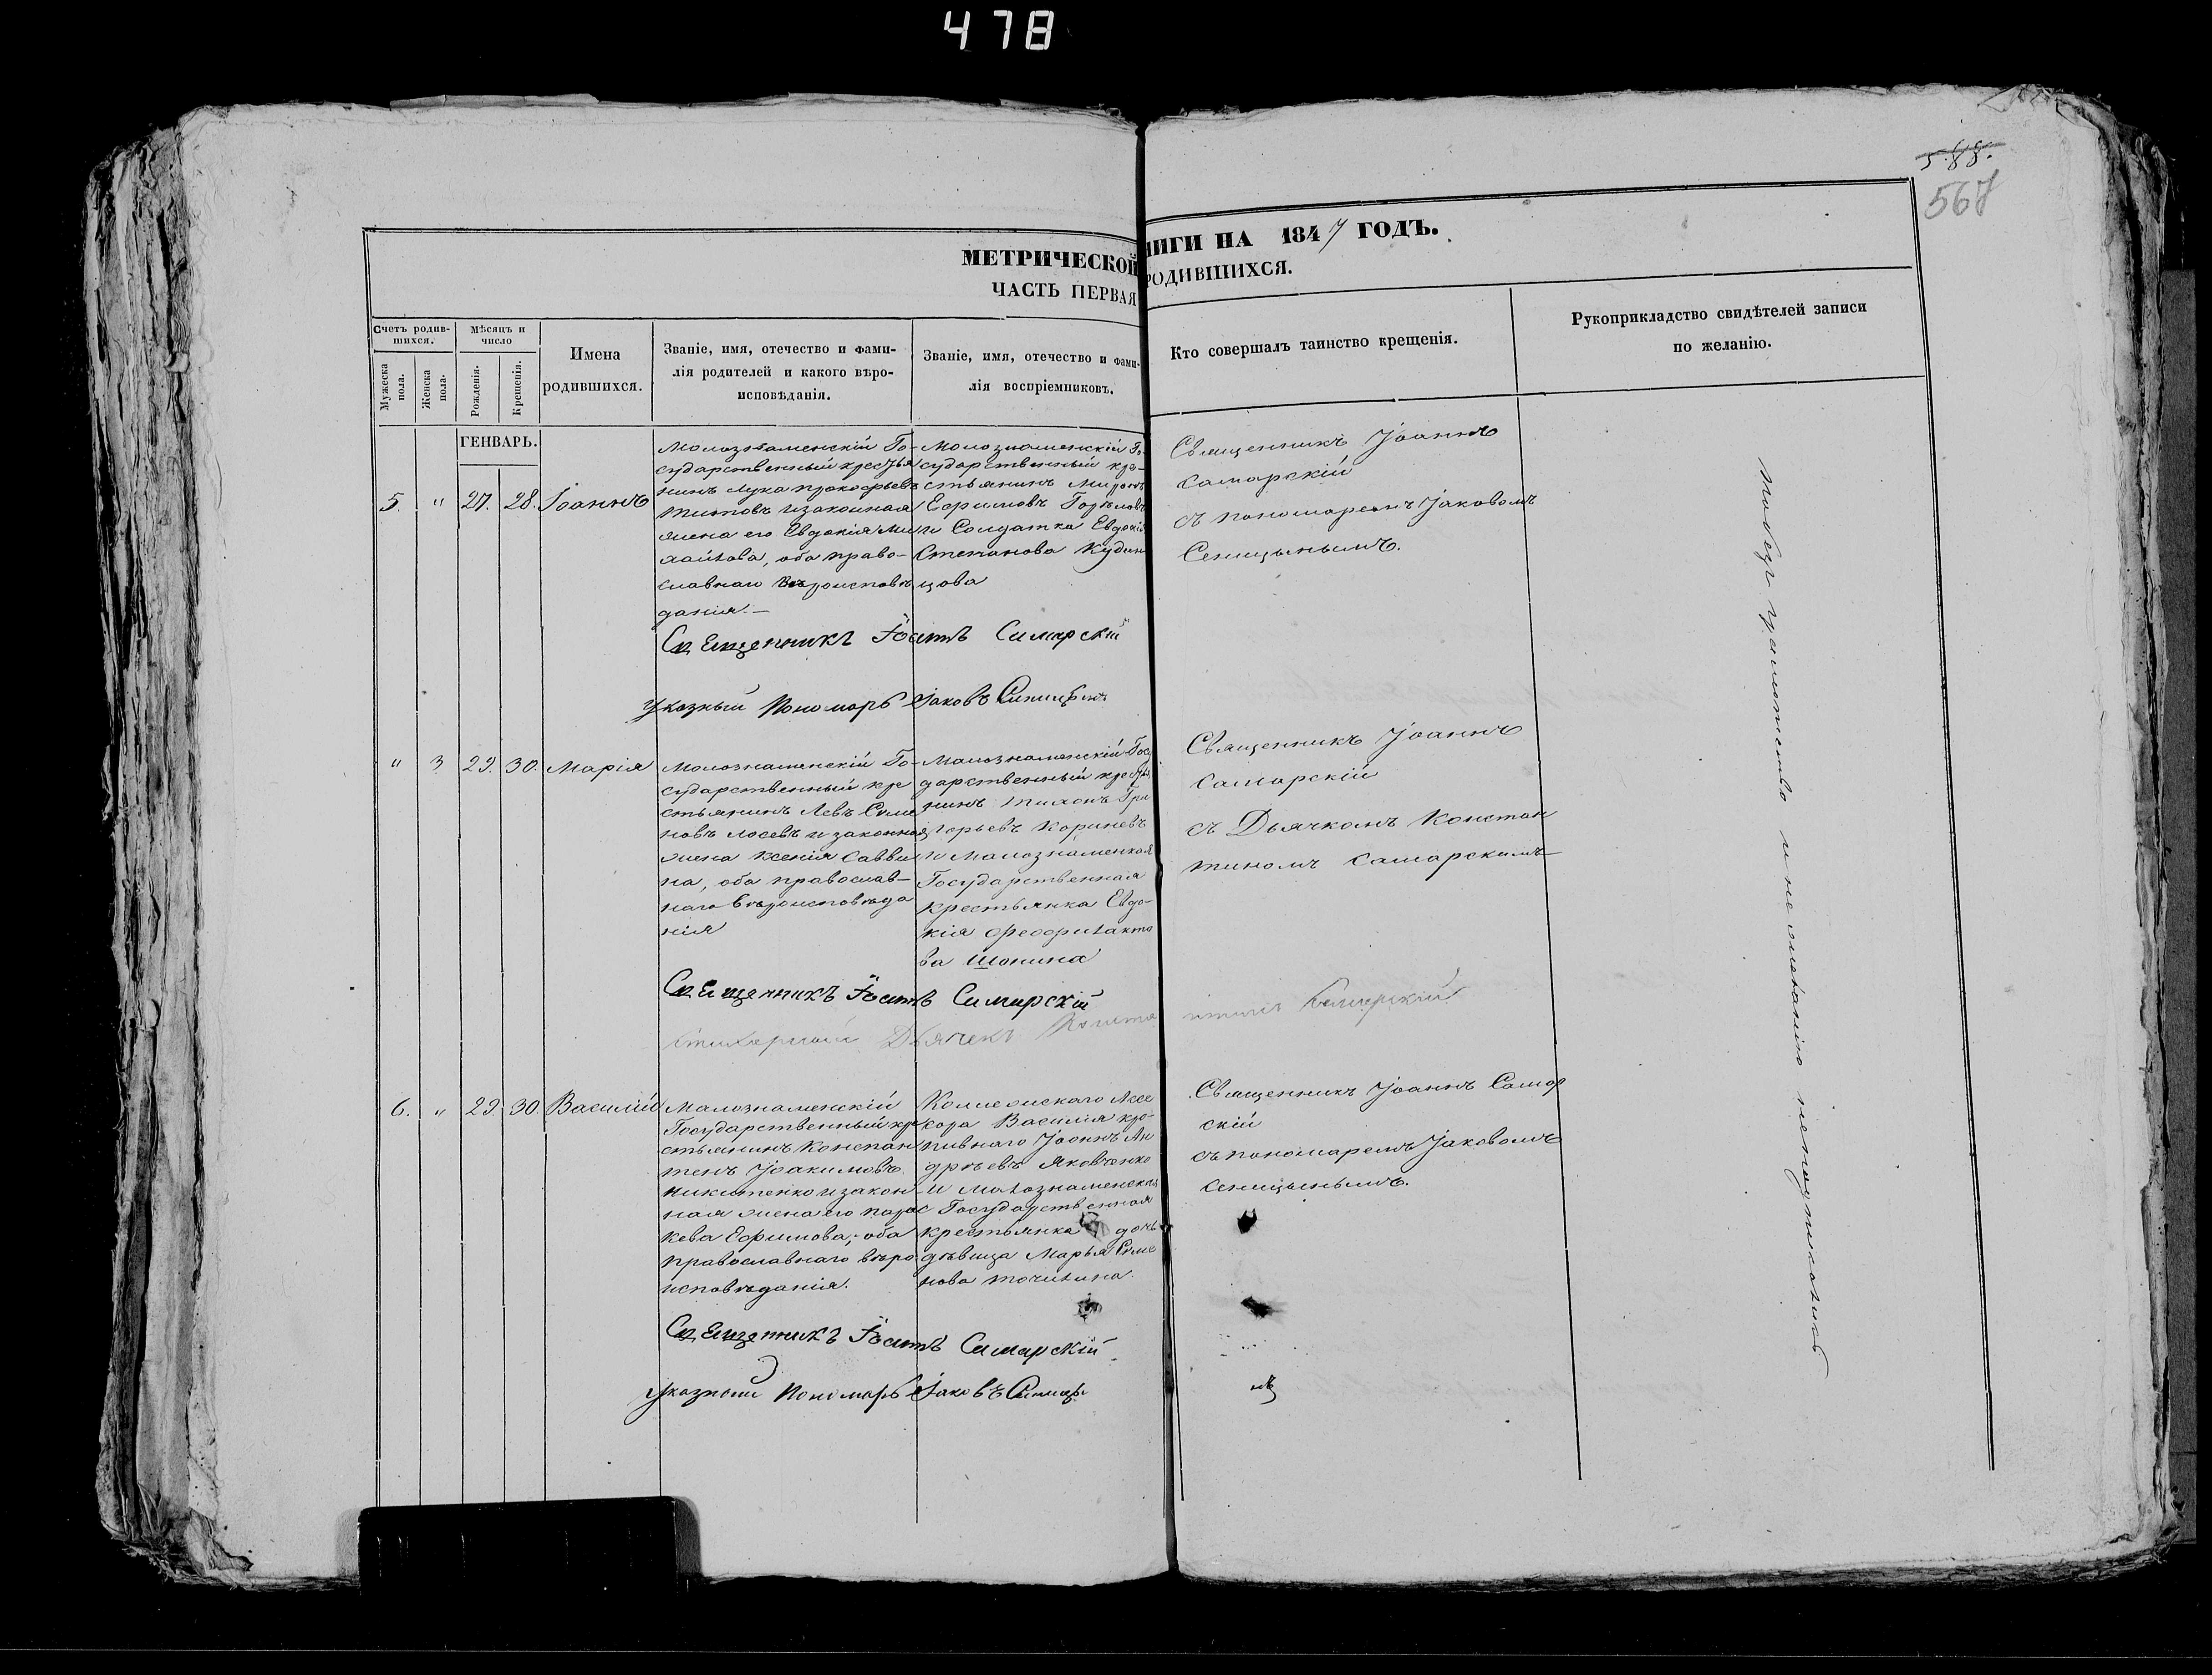 478
588.
567
МЕТРИЧЕСКОЙ
НИГИ НА 1847 ГОДЪ.
ЧАСТЬ ПЕРВАЯ
РОДИВШИХСЯ.
Счетъ родив-
шихся.
Мужеска
пола.
Женска
пола.
Мѣсяцъ и
число
Рожденія.
Крещенія.
Имена
родившихся.
Званіе, имя, отечество и фами-
лія родителей и какого вѣро-
исповѣданія.
Званіе, имя, отечество и фами-
лія воспріемниковъ.
Кто совершалъ таинство крещенія.
Рукоприкладство свидѣтелей записи
по желанію.
ГЕНВАРЬ.
5. " 27. 28. Іоаннъ
Малознаменскій Го-
сударственный крестья
нинъ Лука Прокофьевъ
Титовъ и законная
жена его Евдокія Ми
хайлова, оба право-
славнаго вѣроисповѣ
данія.—
Малознаменскій Го-
сударственный кре-
стьянинъ Миронъ
Ефимовъ
и Солдатка Евдокія
Степанова Кудин
цова
Священникъ Іоаннъ
Самарскій
съ пономаремъ Іаковомъ
Сеницынымъ.
Священникъ Іоаннъ Самарскій
Указный Пономарь Іаковъ
" 3 29. 30. Марія
Малознаменскій Го-
сударственный кре
стьянинъ Левъ Симе
новъ Лосевъ и законная
жена Ксенія Савви
на, оба православ-
наго вѣроисповѣда
нія
Малознаменскій Госу
дарственный крестья
нинъ Тихонъ Гри
горьевъ Кориневъ
и Малознаменская
Государственная
крестьянка Евдо-
кія Феофилакто
ва Шонина
Священникъ Іоаннъ
Самарскій
съ Дьячкомъ Констан
тиномъ Самарскимъ
Священникъ Іоаннъ Самарскій
Стихарный Дьячекъ Конста нтинъ Самарскій
6. " 29. 30. Василій
Малознаменскій
Государственный кре
стьянинъ Констан
тинъ Іоакимовъ
Никитенко и закон
ная жена его Парас
кева Ефимова, оба
православнаго вѣро
исповѣданія.
Коллежскаго Ассе
сора Василія Кро-
пивнаго Іоаннъ Ан
дрѣевъ Яковченко
и Малознаменская
Государственная
крестьянка дочь
дѣвица Марья Симе
нова Точилина.
Священникъ Іоаннъ Самар
скій
съ пономаремъ Іаковомъ
Сеницынымъ.
Священникъ Іоаннъ Самарскій
Указный Пономарь Іаковъ Синицы нъ
по безграмотству и не желанію неподписались